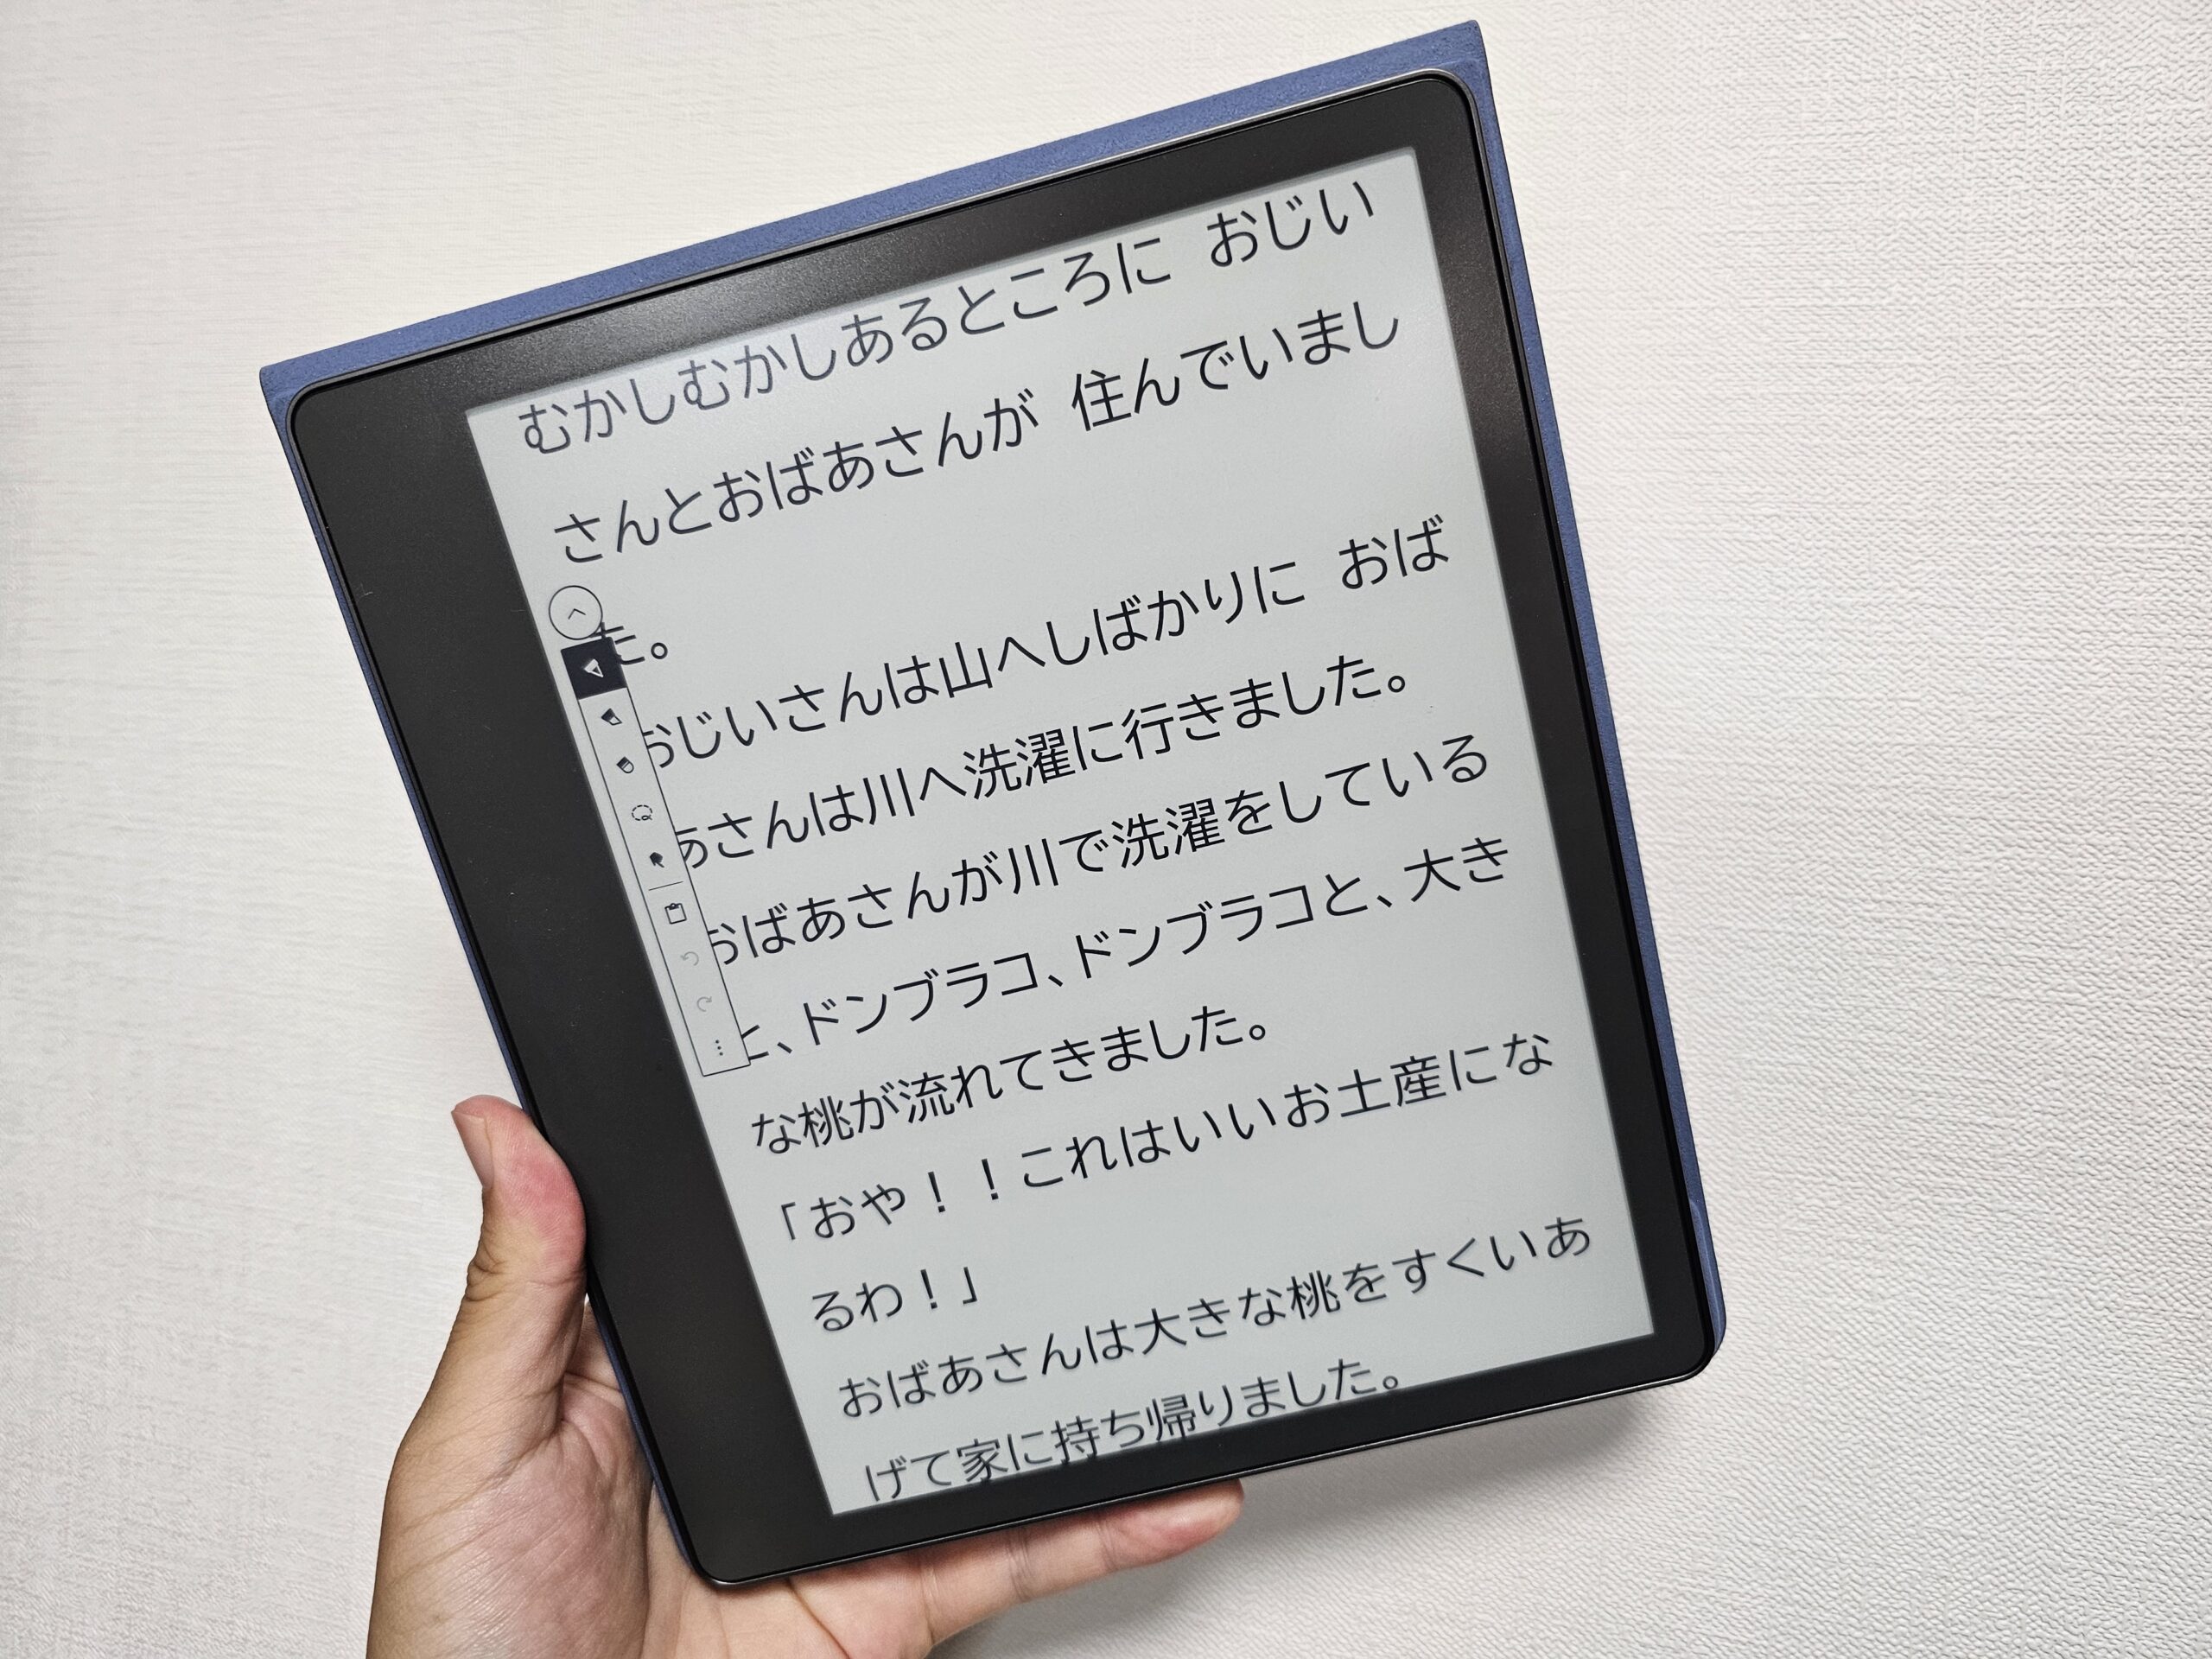 むかしむかしあるところに おじい
さんとおばあさんが 住んでいまし
た。
おじいさんは山へしばかりに おば
あさんは川へ洗濯に行きました。
おばあさんが川で洗濯をしている
と、ドンブラコ、ドンブラコと、大き
な桃が流れてきました。
「おや！！これはいいお土産にな
るわ！」
おばあさんは大きな桃をすくいあ
げて家に持ち帰りました。